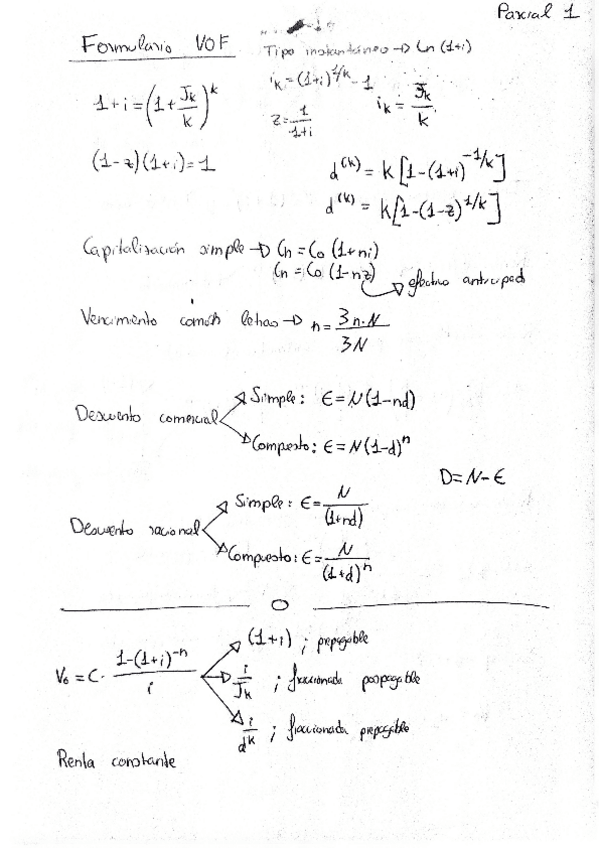 Parcial 1
Formulario VOF
Tipo instantáneo → Ln (1+i)
1+i = (1 + Jk/k)^k
ik = (1+i)^1/k - 1
ik = Jk/k
z = 1/1+i
(1-z)(1+i) = 1
d^(k) = k[1-(1+i)^-1/k]
d^(k) = k[1-(1-z)^1/k]
Capitalización simple → Cn = Co (1+ni)
Cn = Co (1-nz) → efectivo anticipad
Vencimiento común letras → n = 3n·N / 3N
Descuento comercial
Simple: € = N(1-nd)
Compuesto: € = N(1-d)^n
D = N - €
Descuento racional
Simple: € = N / (1+nd)
Compuesto: € = N / (1+d)^n
V0 = C · 1-(1+i)^-n / i
(1+i) ; prepagable
i/Jk ; fraccionada pospagable
i/d^k ; fraccionada prepagable
Renta constante